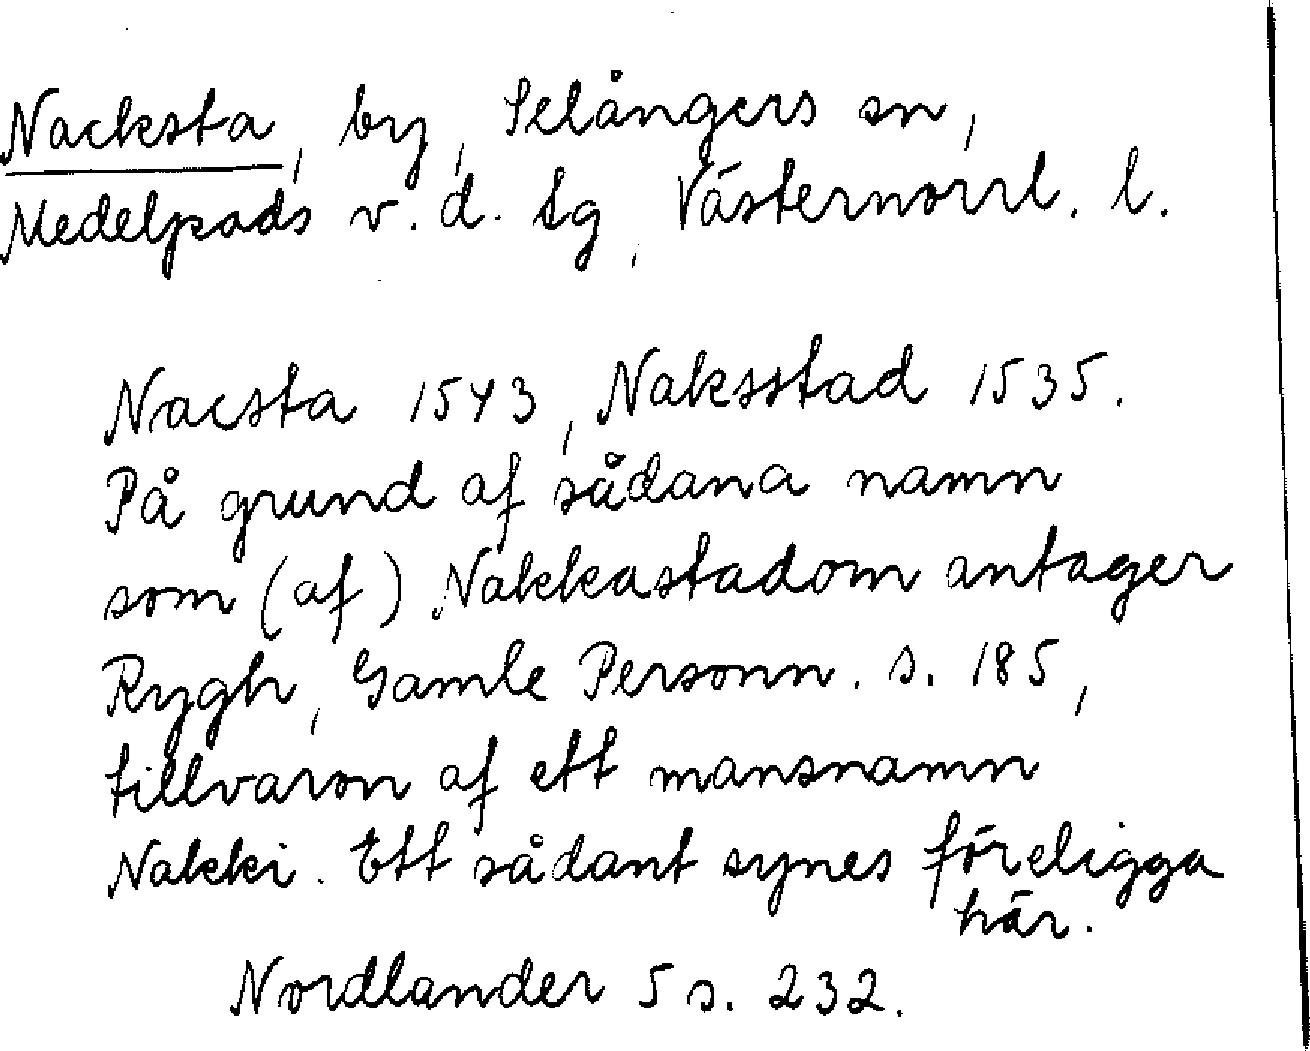 Nacksta, by, Selångers sn,
Medelpads v. d. tg, Västernorrl. l.
Nacsta 1543, Naksstad 1535.
På grund af sådana namn
som (af) Nakkastadom antager
Rygh, Gamle Personn. s. 185,
tillvaron af ett mansnamn
Nakki. Ett sådant synes föreligga
här.
Nordlander 5 s. 232.